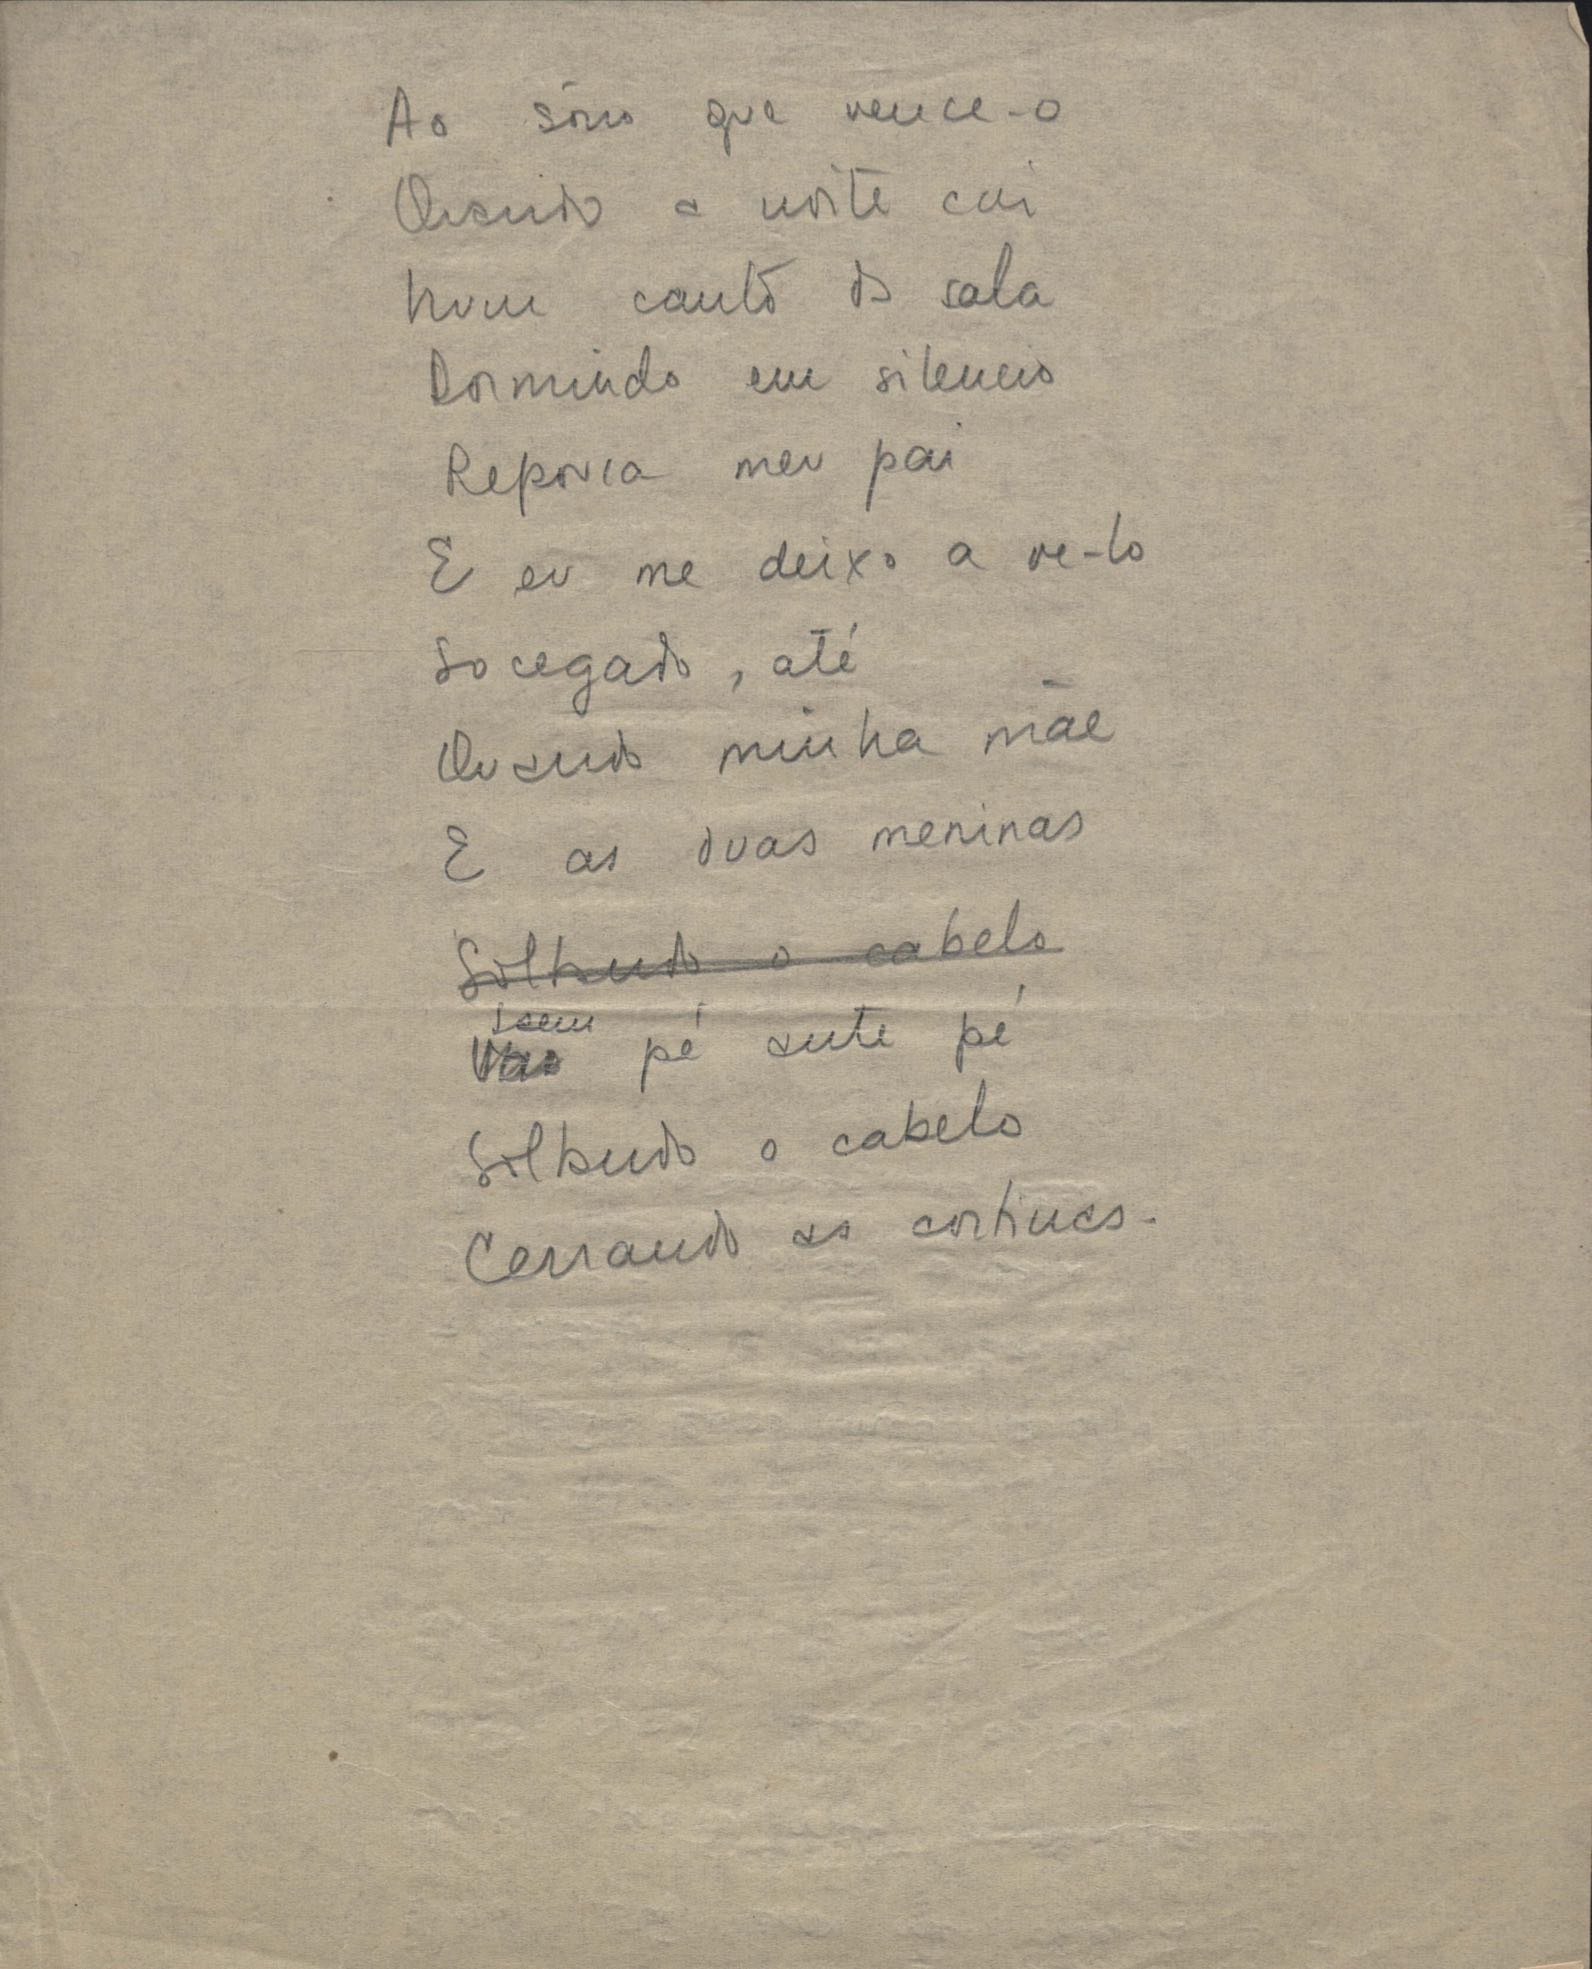 Ao sôno que vence-o
Quando a noite cai
Num canto da sala
Dormindo em silencio
Repousa meu pai
E eu me deixo a ve-lo
Socegado, até
Quando minha mãe
E as duas meninas
Soltando o cabelo
Saem
Vão pé ante pé
Soltando o cabelo
Cerrando as cortinas.